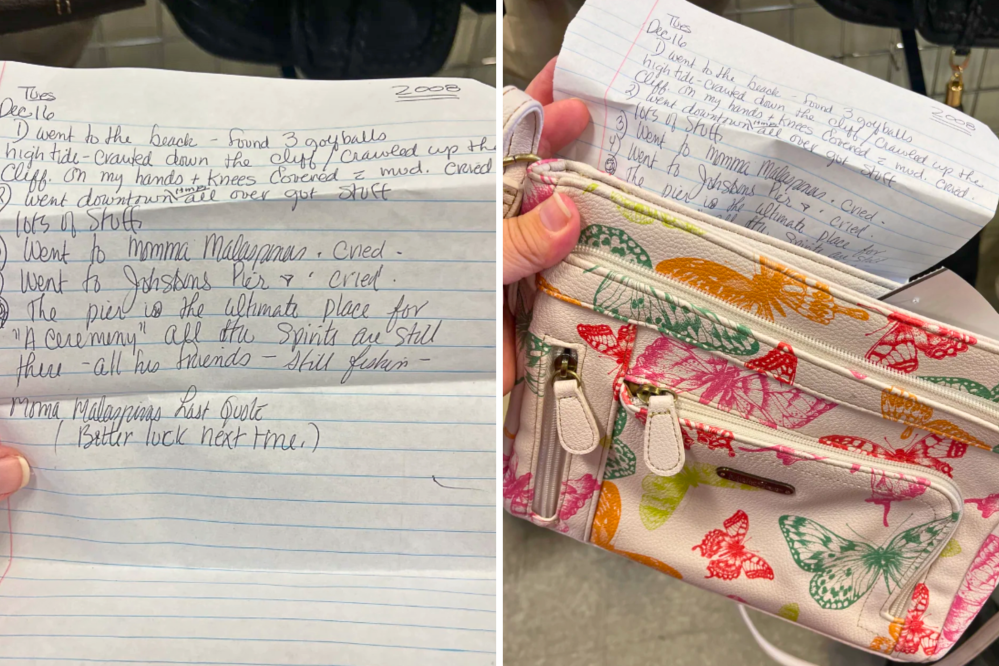 Tues
Dec 16 2008
1) went to the beach - found 3 golf balls
high tide - crawled down the cliff / crawled up the
Cliff. on my hands + knees covered = mud. cried
2) went downtown all over got stuff
lots of stuff.
Went to momma Malaspinas. cried.
Went to Johstons Pier & i cried.
The pier is the ultimate place for
"A ceremeny" all the spirits are still
there - all his friends - still fishin -
Moma Malaspinas Last Quote
(Better luck next time.)
Tues
Dec 16
2008
1) went to the beach - found 3 golf balls
high tide - crawled down the cliff / crawled up the
Cliff. on my hands + knees covered = mud. cried.
2) went downtown all over got stuff
lots of stuff.
3) Went to momma Malaspinas. cried.
4) Went to Johstons Pier & i cried.
The pier is the ultimate place for
the spirits